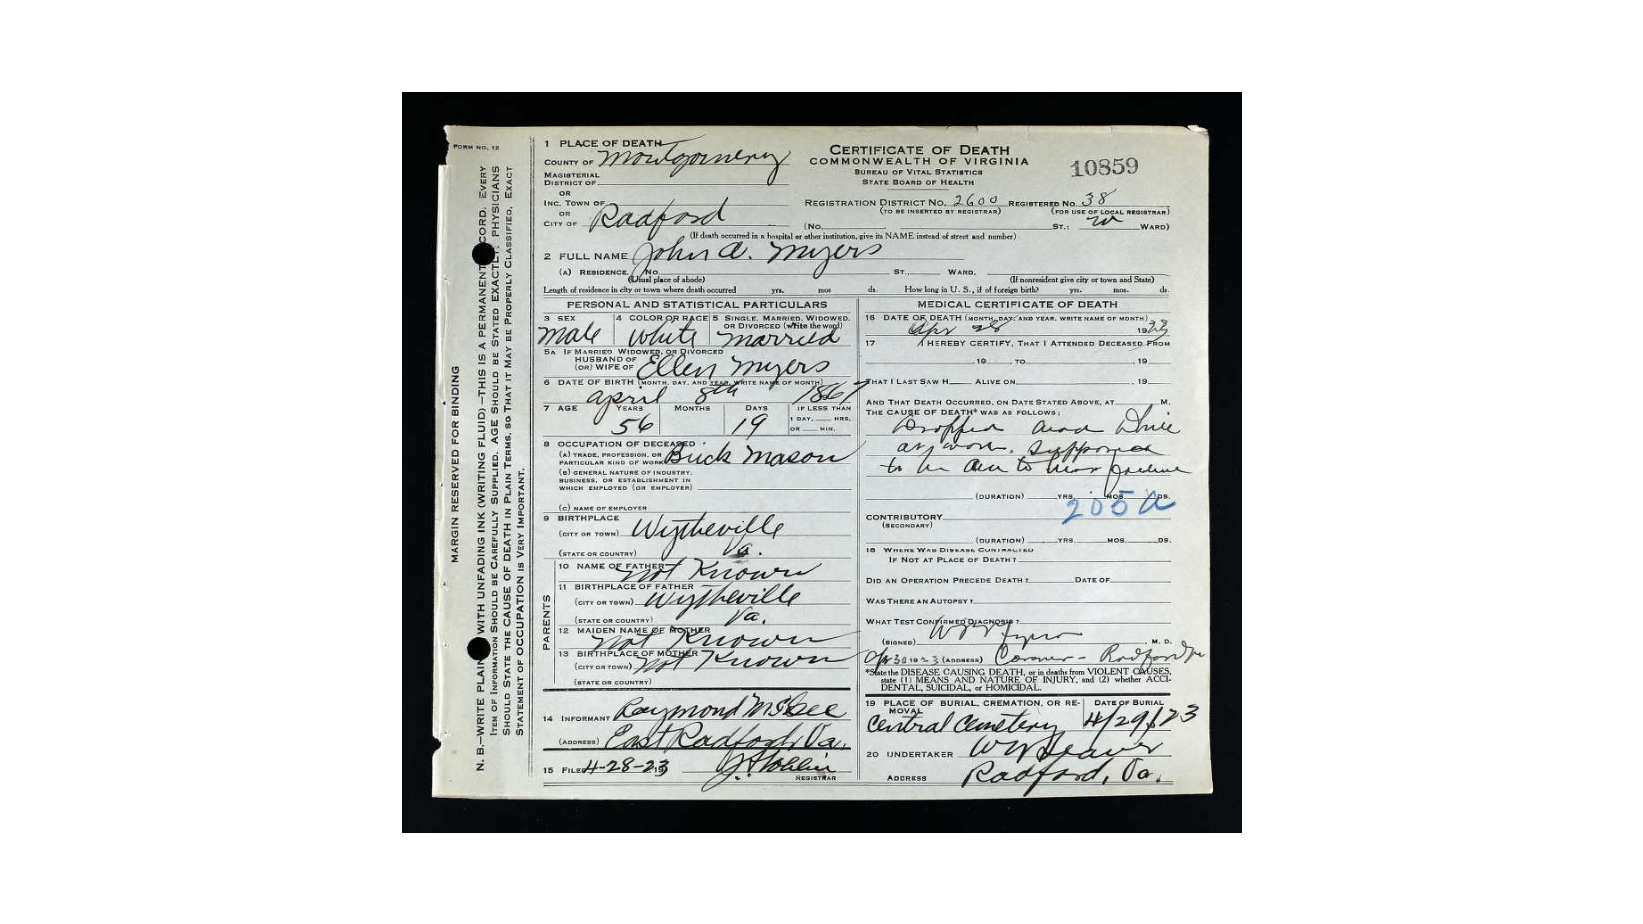 FORM NO. 12
MARGIN RESERVED FOR BINDING
N. B.—WRITE PLAIN WITH UNFADING INK (WRITING FLUID)—THIS IS A PERMANENT CORD. EVERY
ITEM OF INFORMATION SHOULD BE CAREFULLY SUPPLIED. AGE SHOULD BE STATED EXACTLY. PHYSICIANS
SHOULD STATE THE CAUSE OF DEATH IN PLAIN TERMS, SO THAT IT MAY BE PROPERLY CLASSIFIED. EXACT
STATEMENT OF OCCUPATION IS VERY IMPORTANT.
CERTIFICATE OF DEATH
COMMONWEALTH OF VIRGINIA
BUREAU OF VITAL STATISTICS
STATE BOARD OF HEALTH
10859
1 PLACE OF DEATH
COUNTY OF Montgomery
MAGISTERIAL
DISTRICT OF
OR
INC. TOWN OF
OR
CITY OF Radford
REGISTRATION DISTRICT NO. 2600 REGISTERED NO. 38
(TO BE INSERTED BY REGISTRAR) (FOR USE OF LOCAL REGISTRAR)
(No. ST.; W WARD)
(If death occurred in a hospital or other institution, give its NAME instead of street and number)
2 FULL NAME John A. Myers
(A) RESIDENCE. No. ST. WARD.
(Usual place of abode) (If nonresident give city or town and State)
Length of residence in city or town where death occurred yrs. mos ds. How long in U. S., if of foreign birth? yrs. mos. ds.
PERSONAL AND STATISTICAL PARTICULARS
3 SEX 4 COLOR OR RACE 5 SINGLE, MARRIED, WIDOWED,
OR DIVORCED (write the word)
Male White Married
5A IF MARRIED WIDOWED, OR DIVORCED
HUSBAND OF
(OR) WIFE OF Ellen Myers
6 DATE OF BIRTH (MONTH, DAY, AND YEAR, WRITE NAME OF MONTH)
April 8th 1867
7 AGE YEARS MONTHS DAYS IF LESS THAN
1 DAY, HRS.
OR MIN.
56 19
8 OCCUPATION OF DECEASED
(A) TRADE, PROFESSION, OR
PARTICULAR KIND OF WORK Brick Mason
(B) GENERAL NATURE OF INDUSTRY,
BUSINESS, OR ESTABLISHMENT IN
WHICH EMPLOYED (OR EMPLOYER)
(C) NAME OF EMPLOYER
9 BIRTHPLACE
(CITY OR TOWN) Wytheville
(STATE OR COUNTRY) Va.
PARENTS
10 NAME OF FATHER Not Known
11 BIRTHPLACE OF FATHER
(CITY OR TOWN) Wytheville
(STATE OR COUNTRY) Va.
12 MAIDEN NAME OF MOTHER
Not Known
13 BIRTHPLACE OF MOTHER
(CITY OR TOWN) Not Known
(STATE OR COUNTRY)
14 INFORMANT Raymond McGee
(ADDRESS) East Radford, Va.
15 FILED 4-28-23
REGISTRAR
MEDICAL CERTIFICATE OF DEATH
16 DATE OF DEATH (MONTH, DAY, AND YEAR, WRITE NAME OF MONTH)
Apr 28 1923
17 I HEREBY CERTIFY, THAT I ATTENDED DECEASED FROM
, 19 , TO , 19
THAT I LAST SAW H ALIVE ON , 19
AND THAT DEATH OCCURRED, ON DATE STATED ABOVE, AT M.
THE CAUSE OF DEATH* WAS AS FOLLOWS:
Dropped dead while
at work. Supposed
to be due to heart failure
(DURATION) YRS. MOS. DS.
205a
CONTRIBUTORY
(SECONDARY)
(DURATION) YRS. MOS. DS.
18 WHERE WAS DISEASE CONTRACTED
IF NOT AT PLACE OF DEATH?
DID AN OPERATION PRECEDE DEATH? DATE OF
WAS THERE AN AUTOPSY?
WHAT TEST CONFIRMED DIAGNOSIS?
(SIGNED) , M. D.
Apr 30 1923 (ADDRESS) Coroner - Radford Va
*State the DISEASE CAUSING DEATH, or in deaths from VIOLENT CAUSES,
state (1) MEANS AND NATURE OF INJURY, and (2) whether ACCI-
DENTAL, SUICIDAL, or HOMICIDAL.
19 PLACE OF BURIAL, CREMATION, OR RE- DATE OF BURIAL
MOVAL
Central Cemetery 4/29/23
20 UNDERTAKER
ADDRESS Radford, Va.